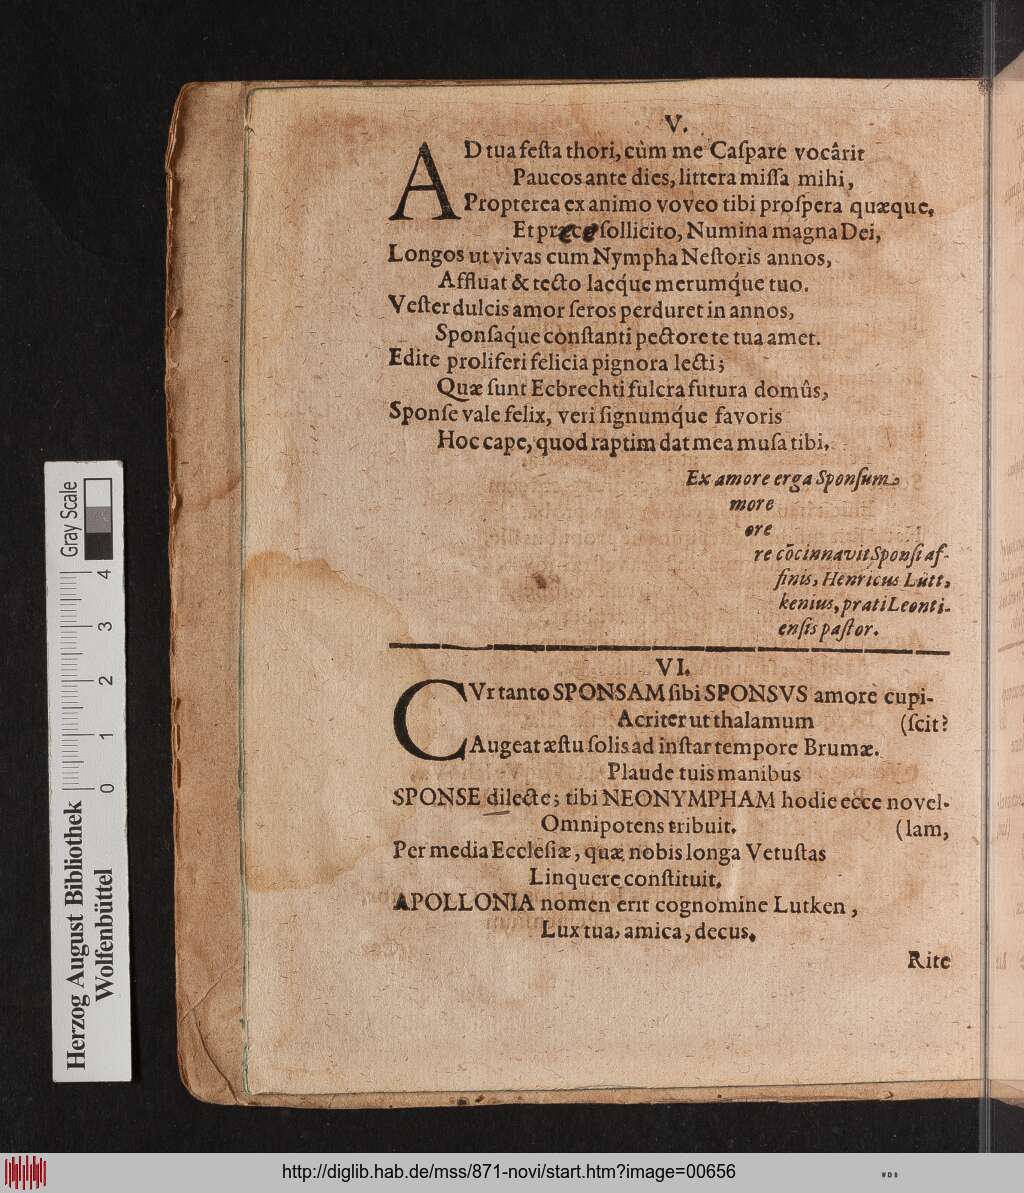 V.
AD tua feſta thori, cùm me Caſpare vocârit
Paucos ante dies, littera miſſa mihi,
Propterea ex animo voveo tibi proſpera quæque,
Et prece ſollicito, Numina magna Dei,
Longos ut vivas cum Nympha Neſtoris annos,
Affluat & tecto lacque merumq́ue tuo.
Veſter dulcis amor ſeros perduret in annos,
Sponſaq́ue conſtanti pectore te tua amet.
Edite proliferi felicia pignora lecti;
Quæ ſunt Ecbrechti fulcra futura domûs,
Sponſe vale felix, veri ſignumq́ue favoris
Hoc cape, quod raptim dat mea muſa tibi.
Ex amore erga Sponſum
more
ore
re cõcinnavit Sponſi af-
finis, Henricus Lütt,
kenius, prati Leonti-
enſis paſtor.
VI.
CVr tanto SPONSAM ſibi SPONSVS amore cupi-
Acriter ut thalamum (ſcit?
Augeat æſtu ſolis ad inſtar tempore Brumæ.
Plaude tuis manibus
SPONSE dilecte; tibi NEONYMPHAM hodie ecce novel-
Omnipotens tribuit. (lam,
Per media Eccleſiæ, quæ nobis longa Vetuſtas
Linquere conſtituit.
APOLLONIA nomen erit cognomine Lutken,
Lux tua, amica, decus.
Rite
Gray Scale
4
3
2
1
0
Herzog August Bibliothek
Wolfenbüttel
http://diglib.hab.de/mss/871-novi/start.htm?image=00656